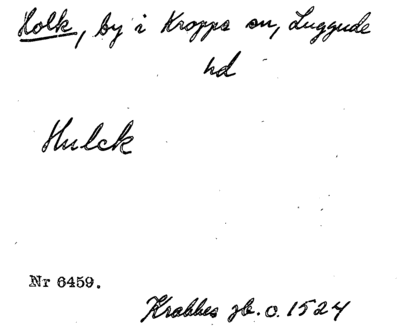 Holk, by i Kropps sn, Luggude
hd
Hulck
Nr 6459.
Krabbes jb. c. 1524